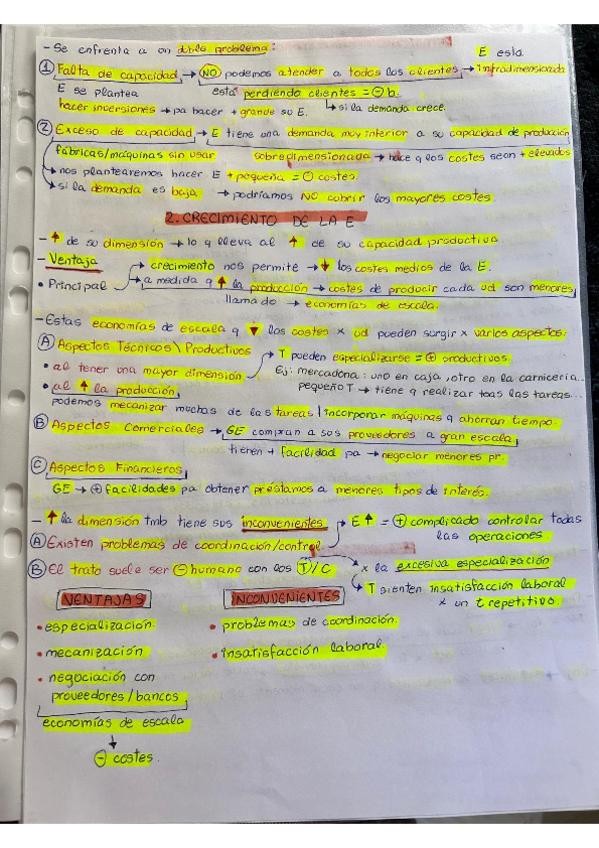 - Se enfrenta a un doble problema:
E esta
① Falta de capacidad → NO podemos atender a todos los clientes → infradimensionada
E se plantea está perdiendo clientes = ⊖ b.
hacer inversiones → pa hacer + grande su E. ↳ si la demanda crece.
② Exceso de capacidad → E tiene una demanda muy inferior a su capacidad de producción
fábricas/máquinas sin usar sobredimensionada → hace q los costes sean + elevados
nos plantearemos hacer E + pequeña = ⊖ costes.
si la demanda es baja → podríamos NO cubrir los mayores costes.
2. CRECIMIENTO DE LA E
- ↑ de su dimensión → lo q lleva al ↑ de su capacidad productiva
- Ventaja → crecimiento nos permite → ↓ los costes medios de la E.
• Principal → a medida q ↑ la producción → costes de producir cada ud son menores
llamado → economías de escala.
- Estas economías de escala q ↓ los costes x ud pueden surgir x varios aspectos:
Ⓐ Aspectos Técnicos \ Productivos → T pueden especializarse = ⊕ productivos.
• al tener una mayor dimensión Ej: mercadona: uno en caja, otro en la carnicería...
• al ↑ la producción, pequeño T → tiene q realizar toas las tareas...
podemos mecanizar muchas de las tareas | incorporar máquinas q ahorran tiempo.
Ⓑ Aspectos Comerciales → GE compran a sus proveedores a gran escala,
tienen + facilidad pa → negociar menores pr.
Ⓒ Aspectos Financieros
GE → ⊕ facilidades pa obtener préstamos a menores tipos de interés.
- ↑ la dimensión tmb tiene sus inconvenientes → E ↑ = ⊕ complicado controlar todas
Ⓐ Existen problemas de coordinación/control las operaciones
Ⓑ El trato suele ser ⊖ humano con los T/C x la excesiva especialización
→ T sienten insatisfacción laboral
VENTAJAS INCONVENIENTES x un t repetitivo.
• especialización • problemas de coordinación.
• mecanización • insatisfacción laboral.
• negociación con
proveedores/bancos
economías de escala
↓
⊖ costes.